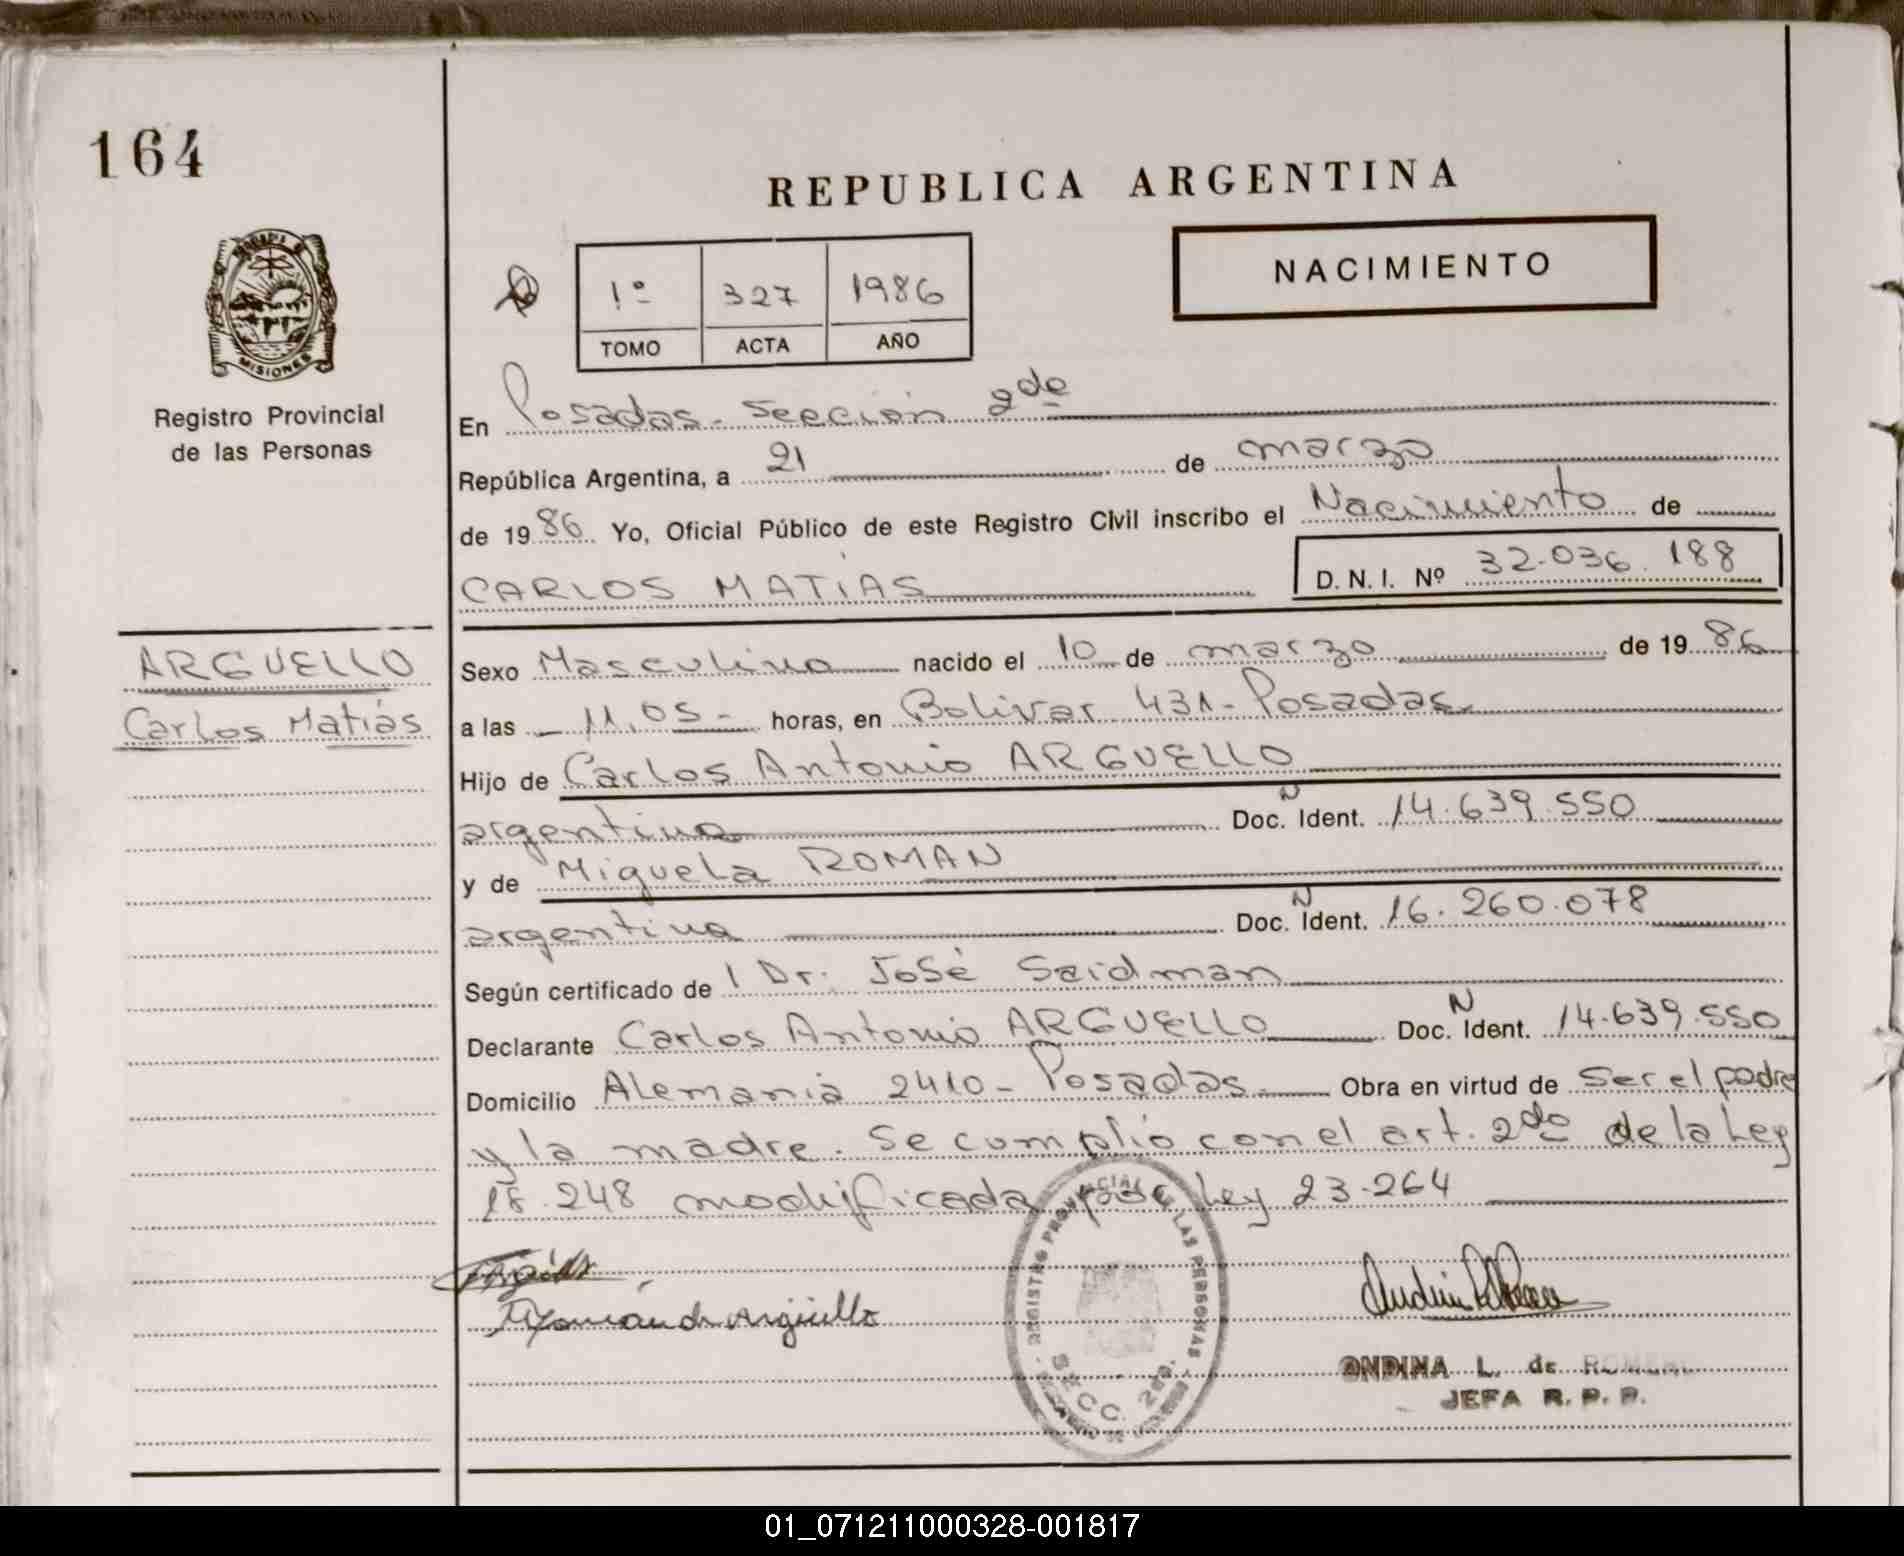 164
REPUBLICA ARGENTINA
NACIMIENTO
1º 327 1986
TOMO ACTA AÑO
MISIONES
Registro Provincial
de las Personas
En Posadas - Sección 2da
República Argentina, a 21 de marzo
de 1986 Yo, Oficial Público de este Registro Civil inscribo el Nacimiento de
CARLOS MATIAS D. N. I. Nº 32.036.188
ARGUELLO
Carlos Matiás
Sexo Masculino nacido el 10 de marzo de 1986
a las 11,05- horas, en Bolivar 431- Posadas
Hijo de Carlos Antonio ARGUELLO
argentino Doc. N Ident. 14.639.550
y de Miguela ROMAN
argentina Doc. N Ident. 16.260.078
Según certificado de l Dr. José Seidman
Declarante Carlos Antonio ARGUELLO Doc. N Ident. 14.639.550
Domicilio Alemania 2410- Posadas Obra en virtud de Ser el padre
y la madre. Se cumplió con el art. 2do de la Ley
18.248 modificada por Ley 23.264
REGISTRO PROVINCIAL DE LAS PERSONAS
SECC. 2da.
ONDINA L. de ROMERO
JEFA R. P. P.
01_071211000328-001817